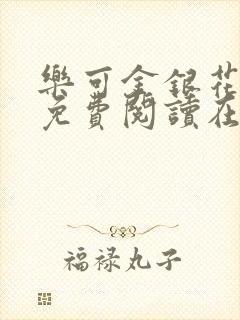 樂可金銀花
免費閱讀在
福禄丸子